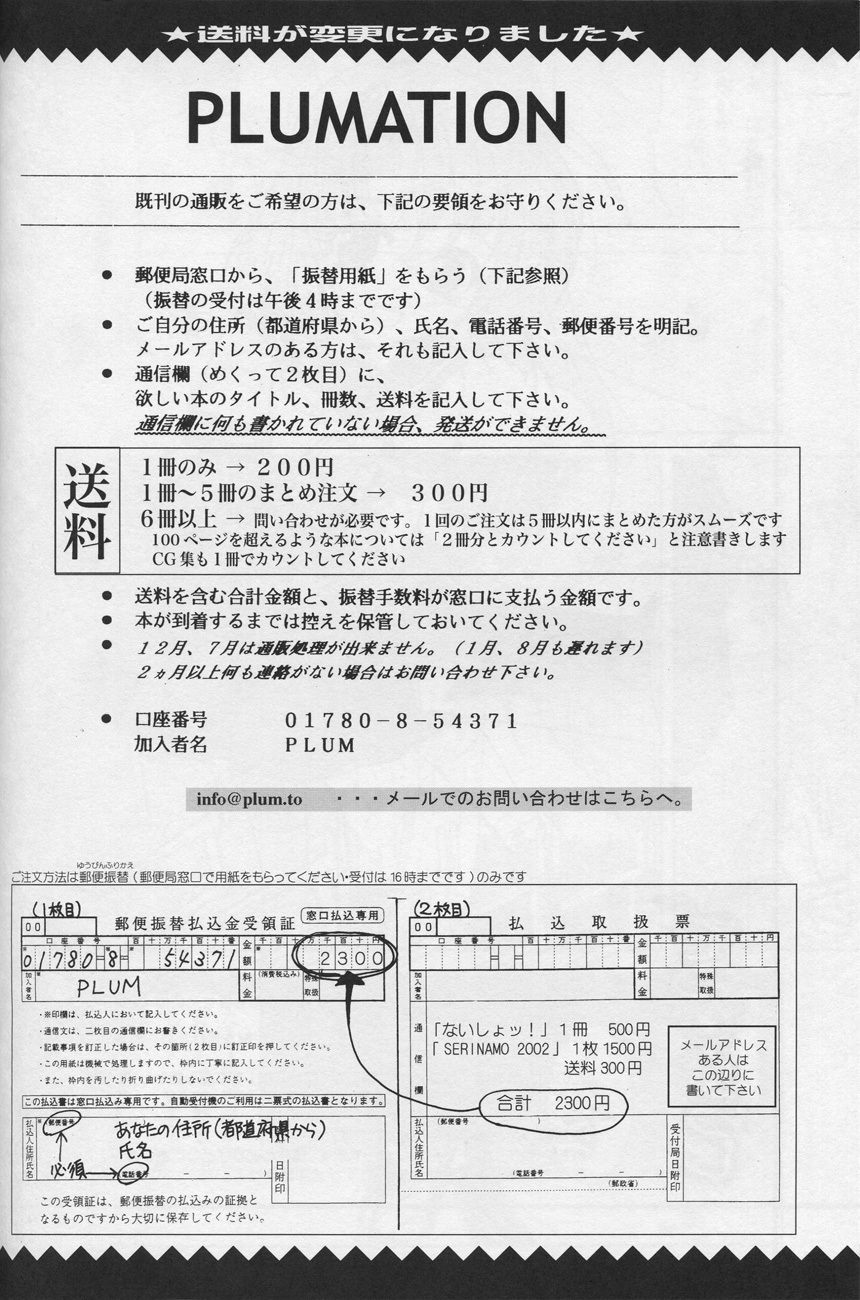 ★送料が変更になりました★
PLUMATION
既刊の通販をご希望の方は、下記の要領をお守りください。
● 郵便局窓口から、「振替用紙」をもらう（下記参照）
（振替の受付は午後４時までです）
● ご自分の住所（都道府県から）、氏名、電話番号、郵便番号を明記。
メールアドレスのある方は、それも記入して下さい。
● 通信欄（めくって２枚目）に、
欲しい本のタイトル、冊数、送料を記入して下さい。
通信欄に何も書かれていない場合、発送ができません。
送料
１冊のみ → ２００円
１冊～５冊のまとめ注文 → ３００円
６冊以上 → 問い合わせが必要です。１回のご注文は５冊以内にまとめた方がスムーズです
100ページを超えるような本については「２冊分とカウントしてください」と注意書きします
CG集も１冊でカウントしてください
● 送料を含む合計金額と、振替手数料が窓口に支払う金額です。
● 本が到着するまでは控えを保管しておいてください。
● １２月、７月は通販処理が出来ません。（１月、８月も遅れます）
２ヵ月以上何も連絡がない場合はお問い合わせ下さい。
● 口座番号 ０１７８０－８－５４３７１
加入者名 ＰＬＵＭ
info@plum.to ・・・メールでのお問い合わせはこちらへ。
ゆうびんふりかえ
ご注文方法は郵便振替（郵便局窓口で用紙をもらってください・受付は16時までです）のみです
(1枚目)
00
郵便振替払込金受領証
窓口払込専用
口座番号 百十万千百十番
金額
千百十万千百十円
01780-8-54371
2300
加入者名
PLUM
料金
(消費税込み)
特殊取扱
・※印欄は、払込人において記入してください。
・通信文は、二枚目の通信欄にお書きください。
・記載事項を訂正した場合は、その箇所(2枚目)に訂正印を押してください。
・この用紙は機械で処理しますので、枠内に丁寧に記入してください。
・また、枠内を汚したり折り曲げたりしないでください。
この払込書は窓口払込み専用です。自動受付機のご利用は二票式の払込書となります。
払込人住所氏名
郵便番号
あなたの住所(都道府県から)
氏名
必須
電話番号
日附印
この受領証は、郵便振替の払込みの証拠と
なるものですから大切に保存してください。
(2枚目)
00
払込取扱票
口座番号 百十万千百十番
金額
千百十万千百十円
加入者名
料金
特殊取扱
通信欄
「ないしょッ！」１冊 500円
「SERINAMO 2002」１枚 1500円
送料 300円
合計 2300円
メールアドレス
ある人は
この辺りに
書いて下さい
払込人住所氏名
(郵便番号 )
(電話番号 － － )
受付局日附印
(郵政省)